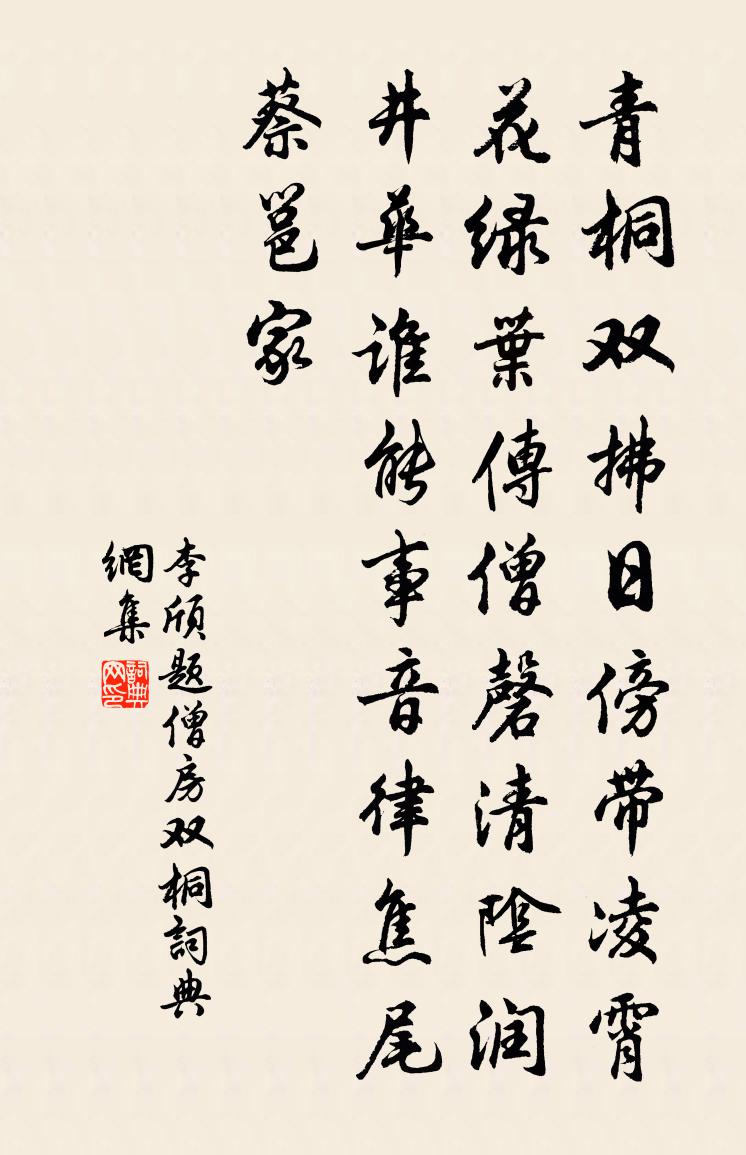 青桐双拂日傍带凌霄
花绿葉傳僧磬清陰润
井華谁能事音律焦尾
蔡邕家
李颀题僧房双桐詞典
網集
詞典
网印